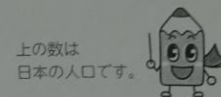 上の数は
日本の人口です。